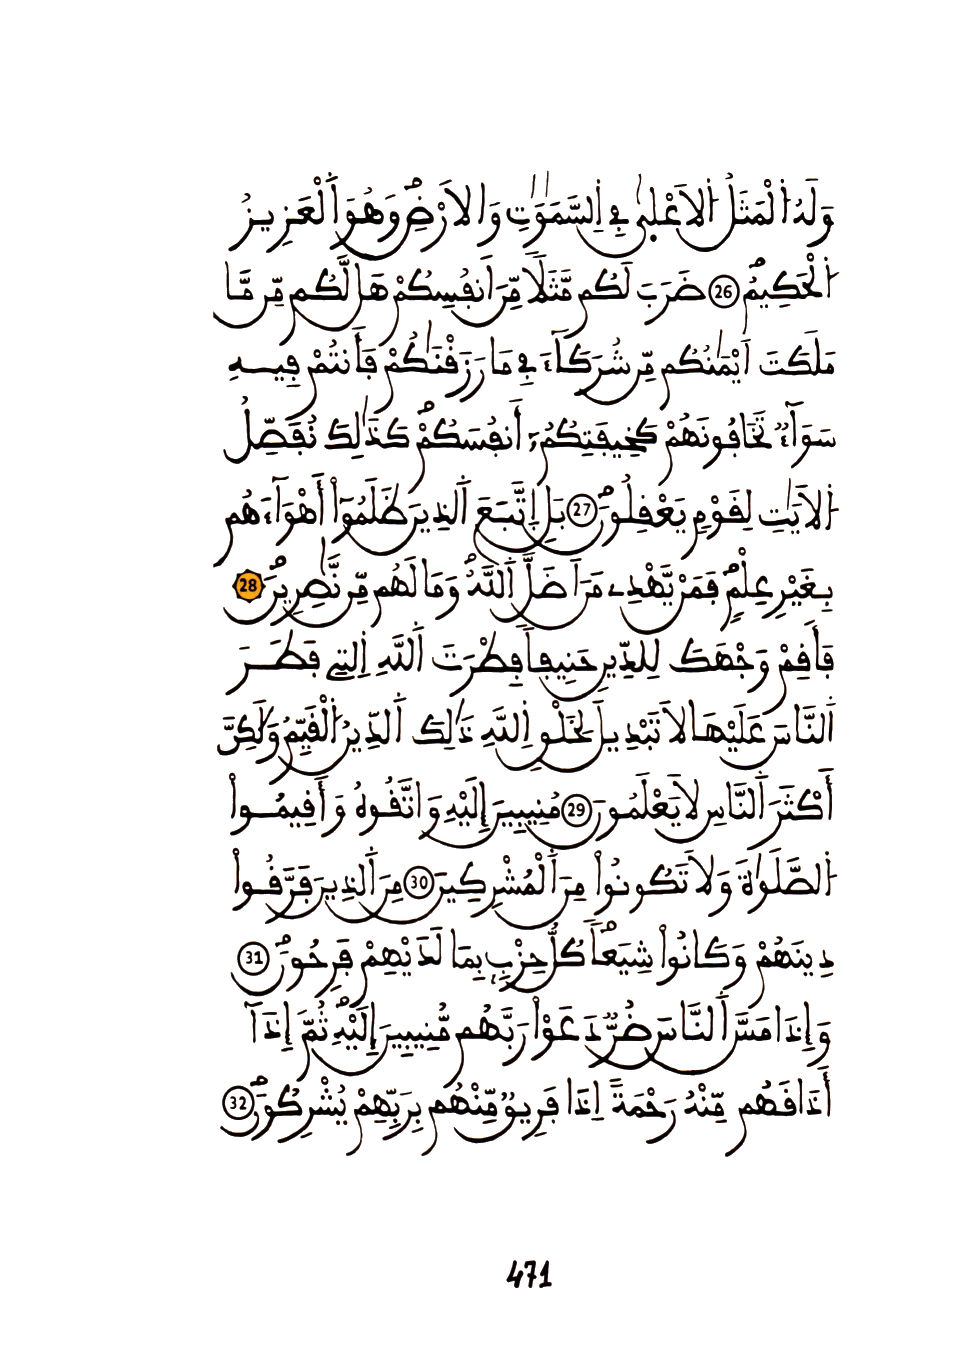 وَلَهُ اُ۬لْمَثَلُ اُ۬لَاعْل۪يٰ فِے اِ۬لسَّمَٰوَٰتِ وَالَارْضِۖ وَهُوَ اَ۬لْعَزِيزُ
اُ۬لْحَكِيمُۖ 26 ضَرَبَ لَكُم مَّثَلاٗ مِّنَ اَنفُسِكُمْ هَل لَّكُم مِّن مَّا
مَلَكَتَ اَيْمَٰنُكُم مِّن شُرَكَآءَ فِے مَا رَزَقْنَٰكُمْ فَأَنتُمْ فِيهِ
سَوَآءٞ تَخَافُونَهُمْ كَخِيفَتِكُمُۥٓ أَنفُسَكُمْۖ كَذَٰلِكَ نُفَصِّلُ
اُ۬لَايَٰتِ لِقَوْمٖ يَعْقِلُونَۖ 27 بَلِ اِ۪تَّبَعَ اَ۬لذِينَ ظَلَمُوٓاْ أَهْوَآءَهُم
بِغَيْرِ عِلْمٖۖ فَمَنْ يَّهْدِے مَنَ اَضَلَّ اَ۬للَّهُۖ وَمَا لَهُم مِّن نَّٰصِرِينَۖ 28
فَأَقِمْ وَجْهَكَ لِلدِّينِ حَنِيفاٗۖ فِطْرَتَ اَ۬للَّهِ اِ۬لتِے فَطَرَ
اَ۬لنَّاسَ عَلَيْهَا لَا تَبْدِيلَ لِخَلْقِ اِ۬للَّهِ ذَٰلِكَ اَ۬لدِّينُ اُ۬لْقَيِّمُ وَلَٰكِنَّ
أَكْثَرَ اَ۬لنَّاسِ لَا يَعْلَمُونَ 29 مُنِيبِينَ إِلَيْهِ وَاتَّقُوهُ وَأَقِيمُواْ
اُ۬لصَّلَوٰةَ وَلَا تَكُونُواْ مِنَ اَ۬لْمُشْرِكِينَ 30 مِنَ اَ۬لذِينَ فَرَّقُواْ
دِينَهُمْ وَكَانُواْ شِيَعاٗۖ كُلُّ حِزْبِۢ بِمَا لَدَيْهِمْ فَرِحُونَۖ 31
وَإِذَا مَسَّ اَ۬لنَّاسَ ضُرّٞ دَعَوْاْ رَبَّهُم مُّنِيبِينَ إِلَيْهِۖ ثُمَّ إِذَآ
أَذَاقَهُم مِّنْهُ رَحْمَةً اِذَا فَرِيقٞ مِّنْهُم بِرَبِّهِمْ يُشْرِكُونَۖ 32
471